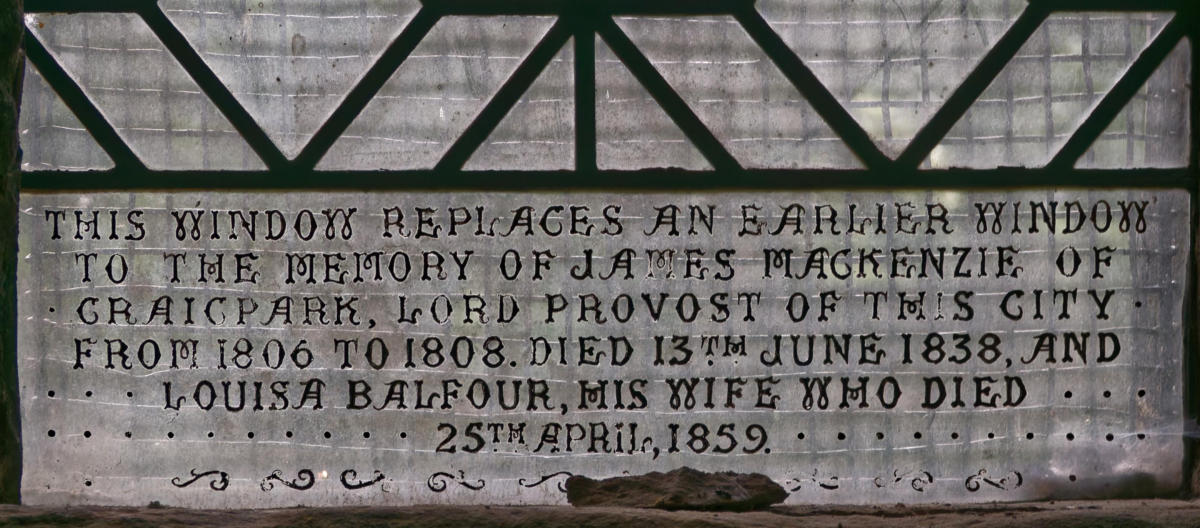 THIS WINDOW REPLACES AN EARLIER WINDOW
TO THE MEMORY OF JAMES MACKENZIE OF
· CRAIGPARK, LORD PROVOST OF THIS CITY ·
FROM 1806 TO 1808. DIED 13TH JUNE 1838, AND
· · · LOUISA BALFOUR, HIS WIFE WHO DIED · · ·
· · · · · · · · · · · 25TH APRIL, 1859. · · · · · · · · · · ·